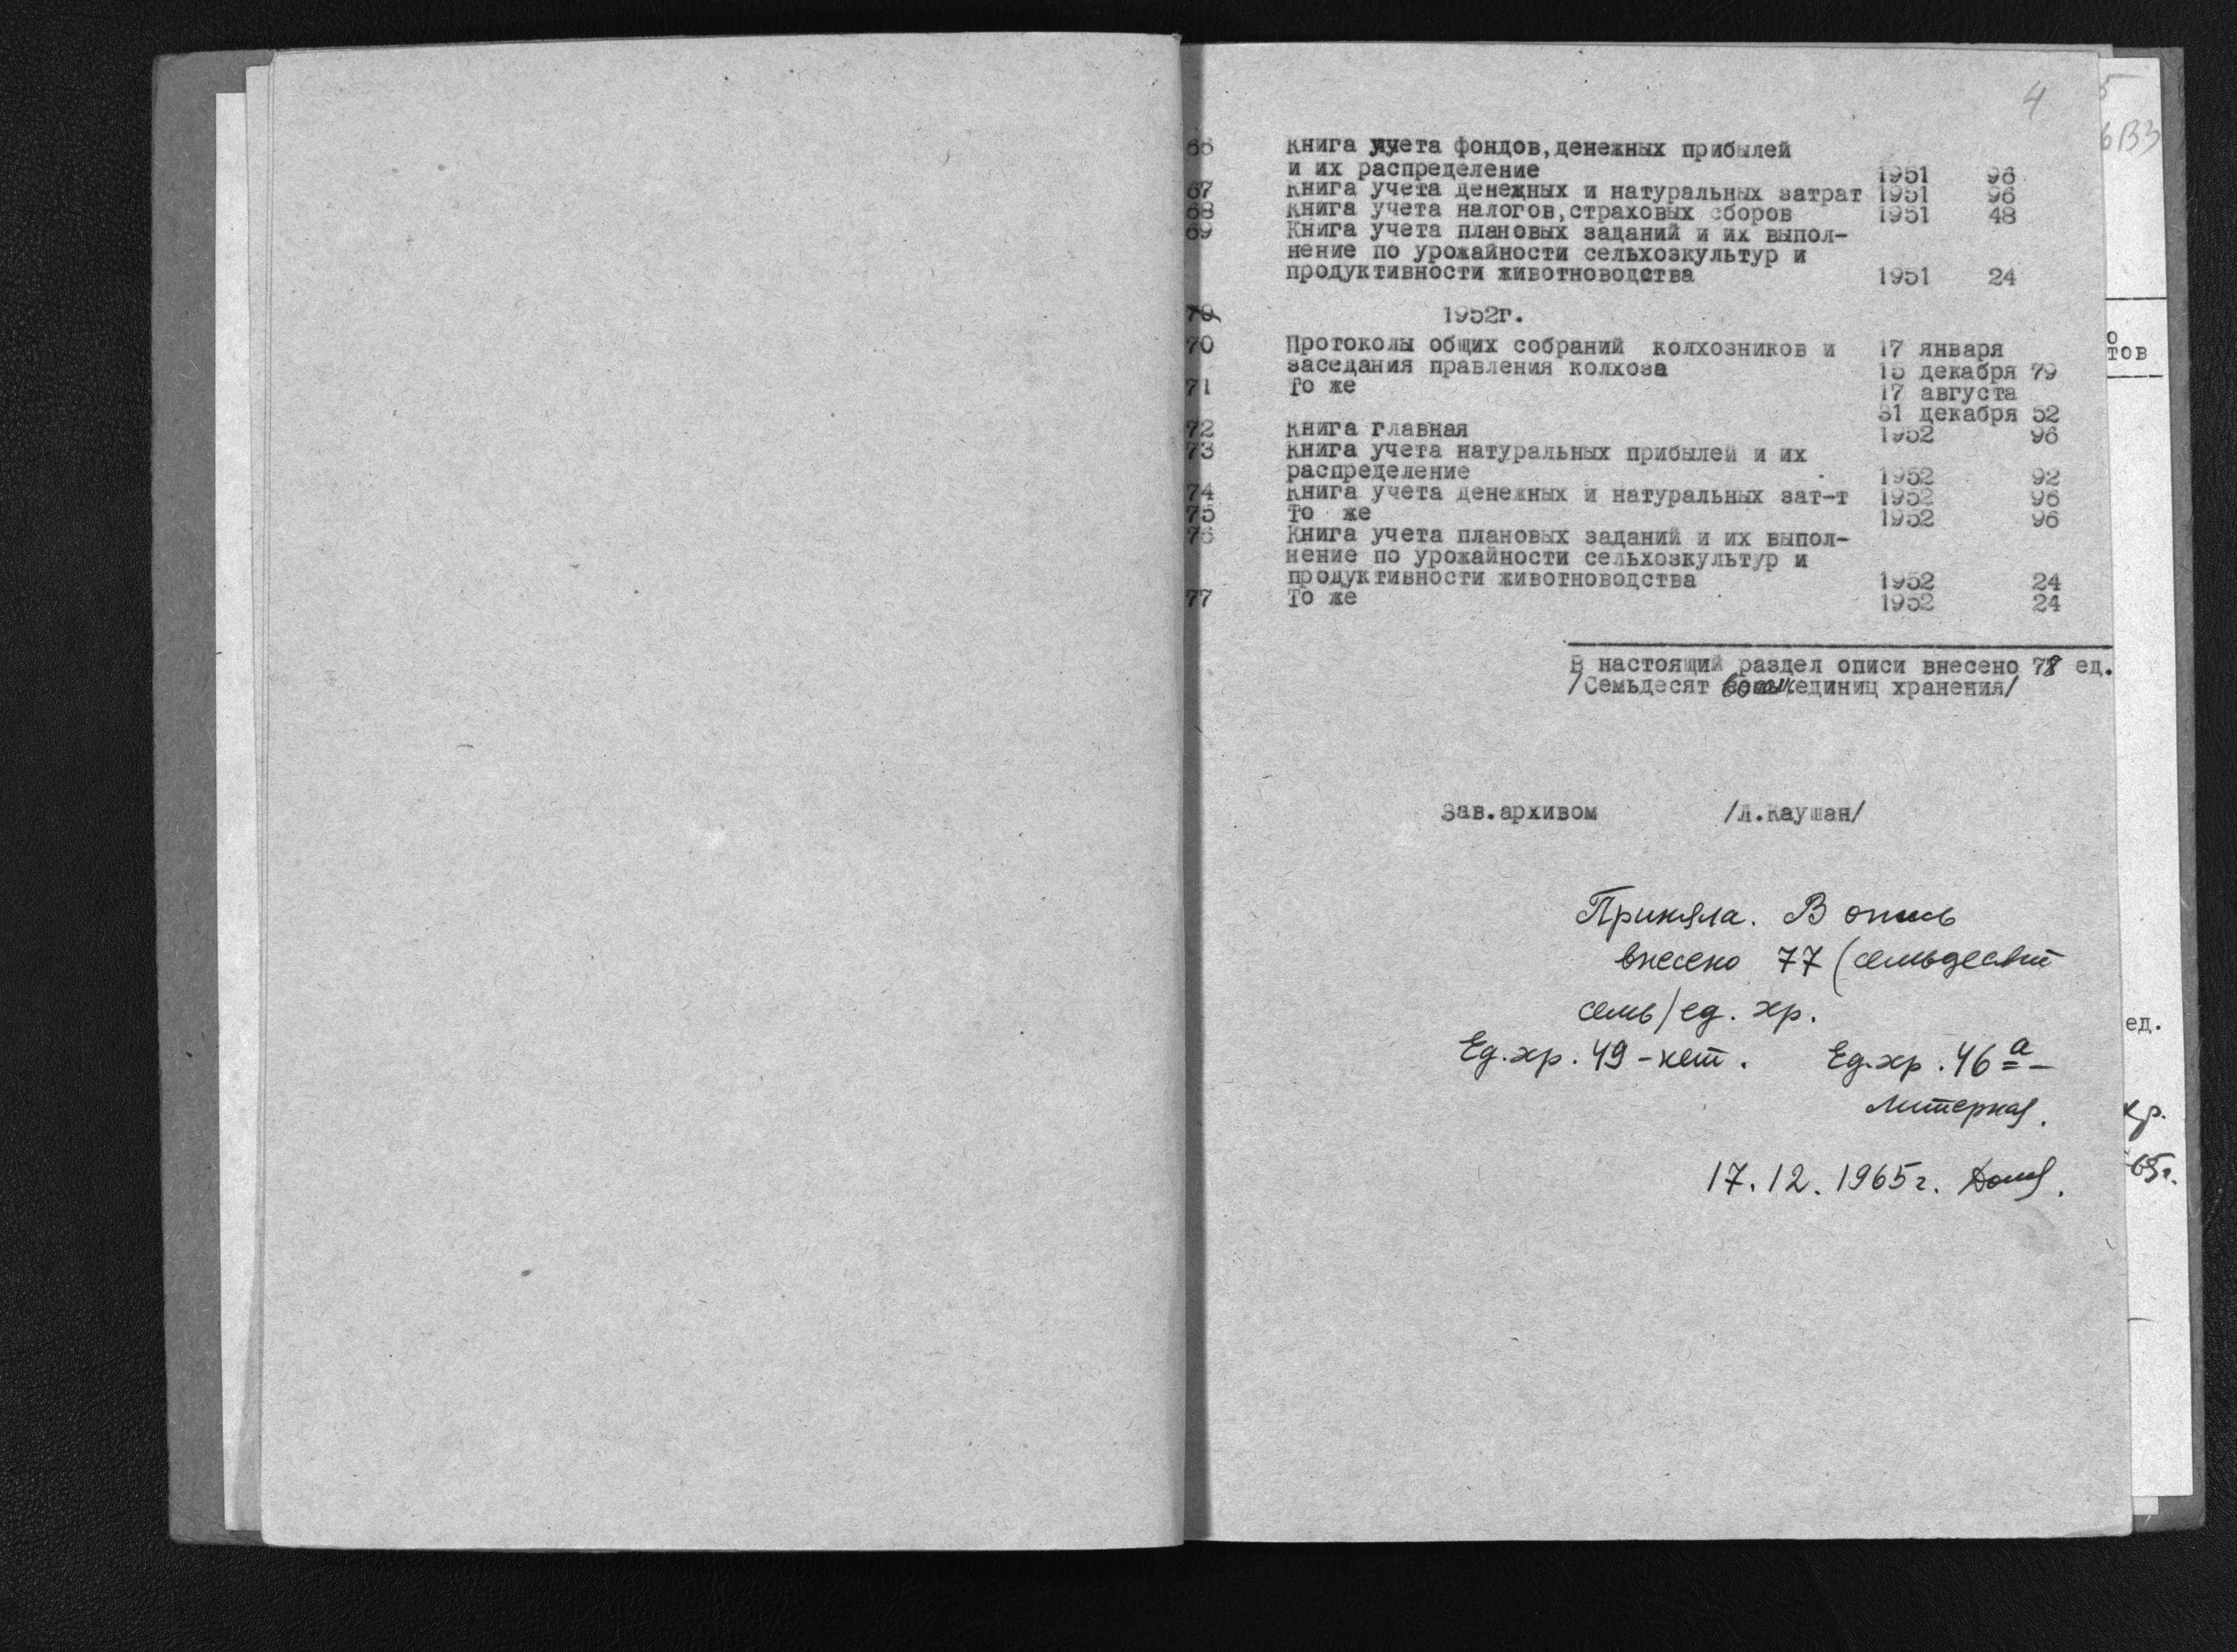 4
66 Книга учета фондов,денежных прибылей
и их распределение 1951 96
67 Книга учета денежных и натуральных затрат 1951 96
68 Книга учета налогов,страховых сборов 1951 48
69 Книга учета плановых заданий и их выпол-
нение по урожайности сельхозкультур и
продуктивности животноводства 1951 24
70 1952г.
70 Протоколы общих собраний колхозников и 17 января
заседания правления колхоза 15 декабря 79
71 То же 17 августа
31 декабря 52
72 Книга главная 1952 96
73 Книга учета натуральных прибылей и их
распределение 1952 92
74 Книга учета денежных и натуральных зат-т 1952 96
75 То же 1952 96
76 Книга учета плановых заданий и их выпол-
нение по урожайности сельхозкультур и
продуктивности животноводства 1952 24
77 То же 1952 24
В настоящий раздел описи внесено 78 ед.
/Семьдесят восемь единиц хранения/
Зав.архивом /Л.Каушан/
Приняла. В опись
внесено 77 (семьдесят
семь/ед. хр.
Ед.хр. 49-нет. Ед.хр. 46а-
литерная.
17.12.1965г.
5
6ВЗ
о
тов
ед.
хр.
65г.